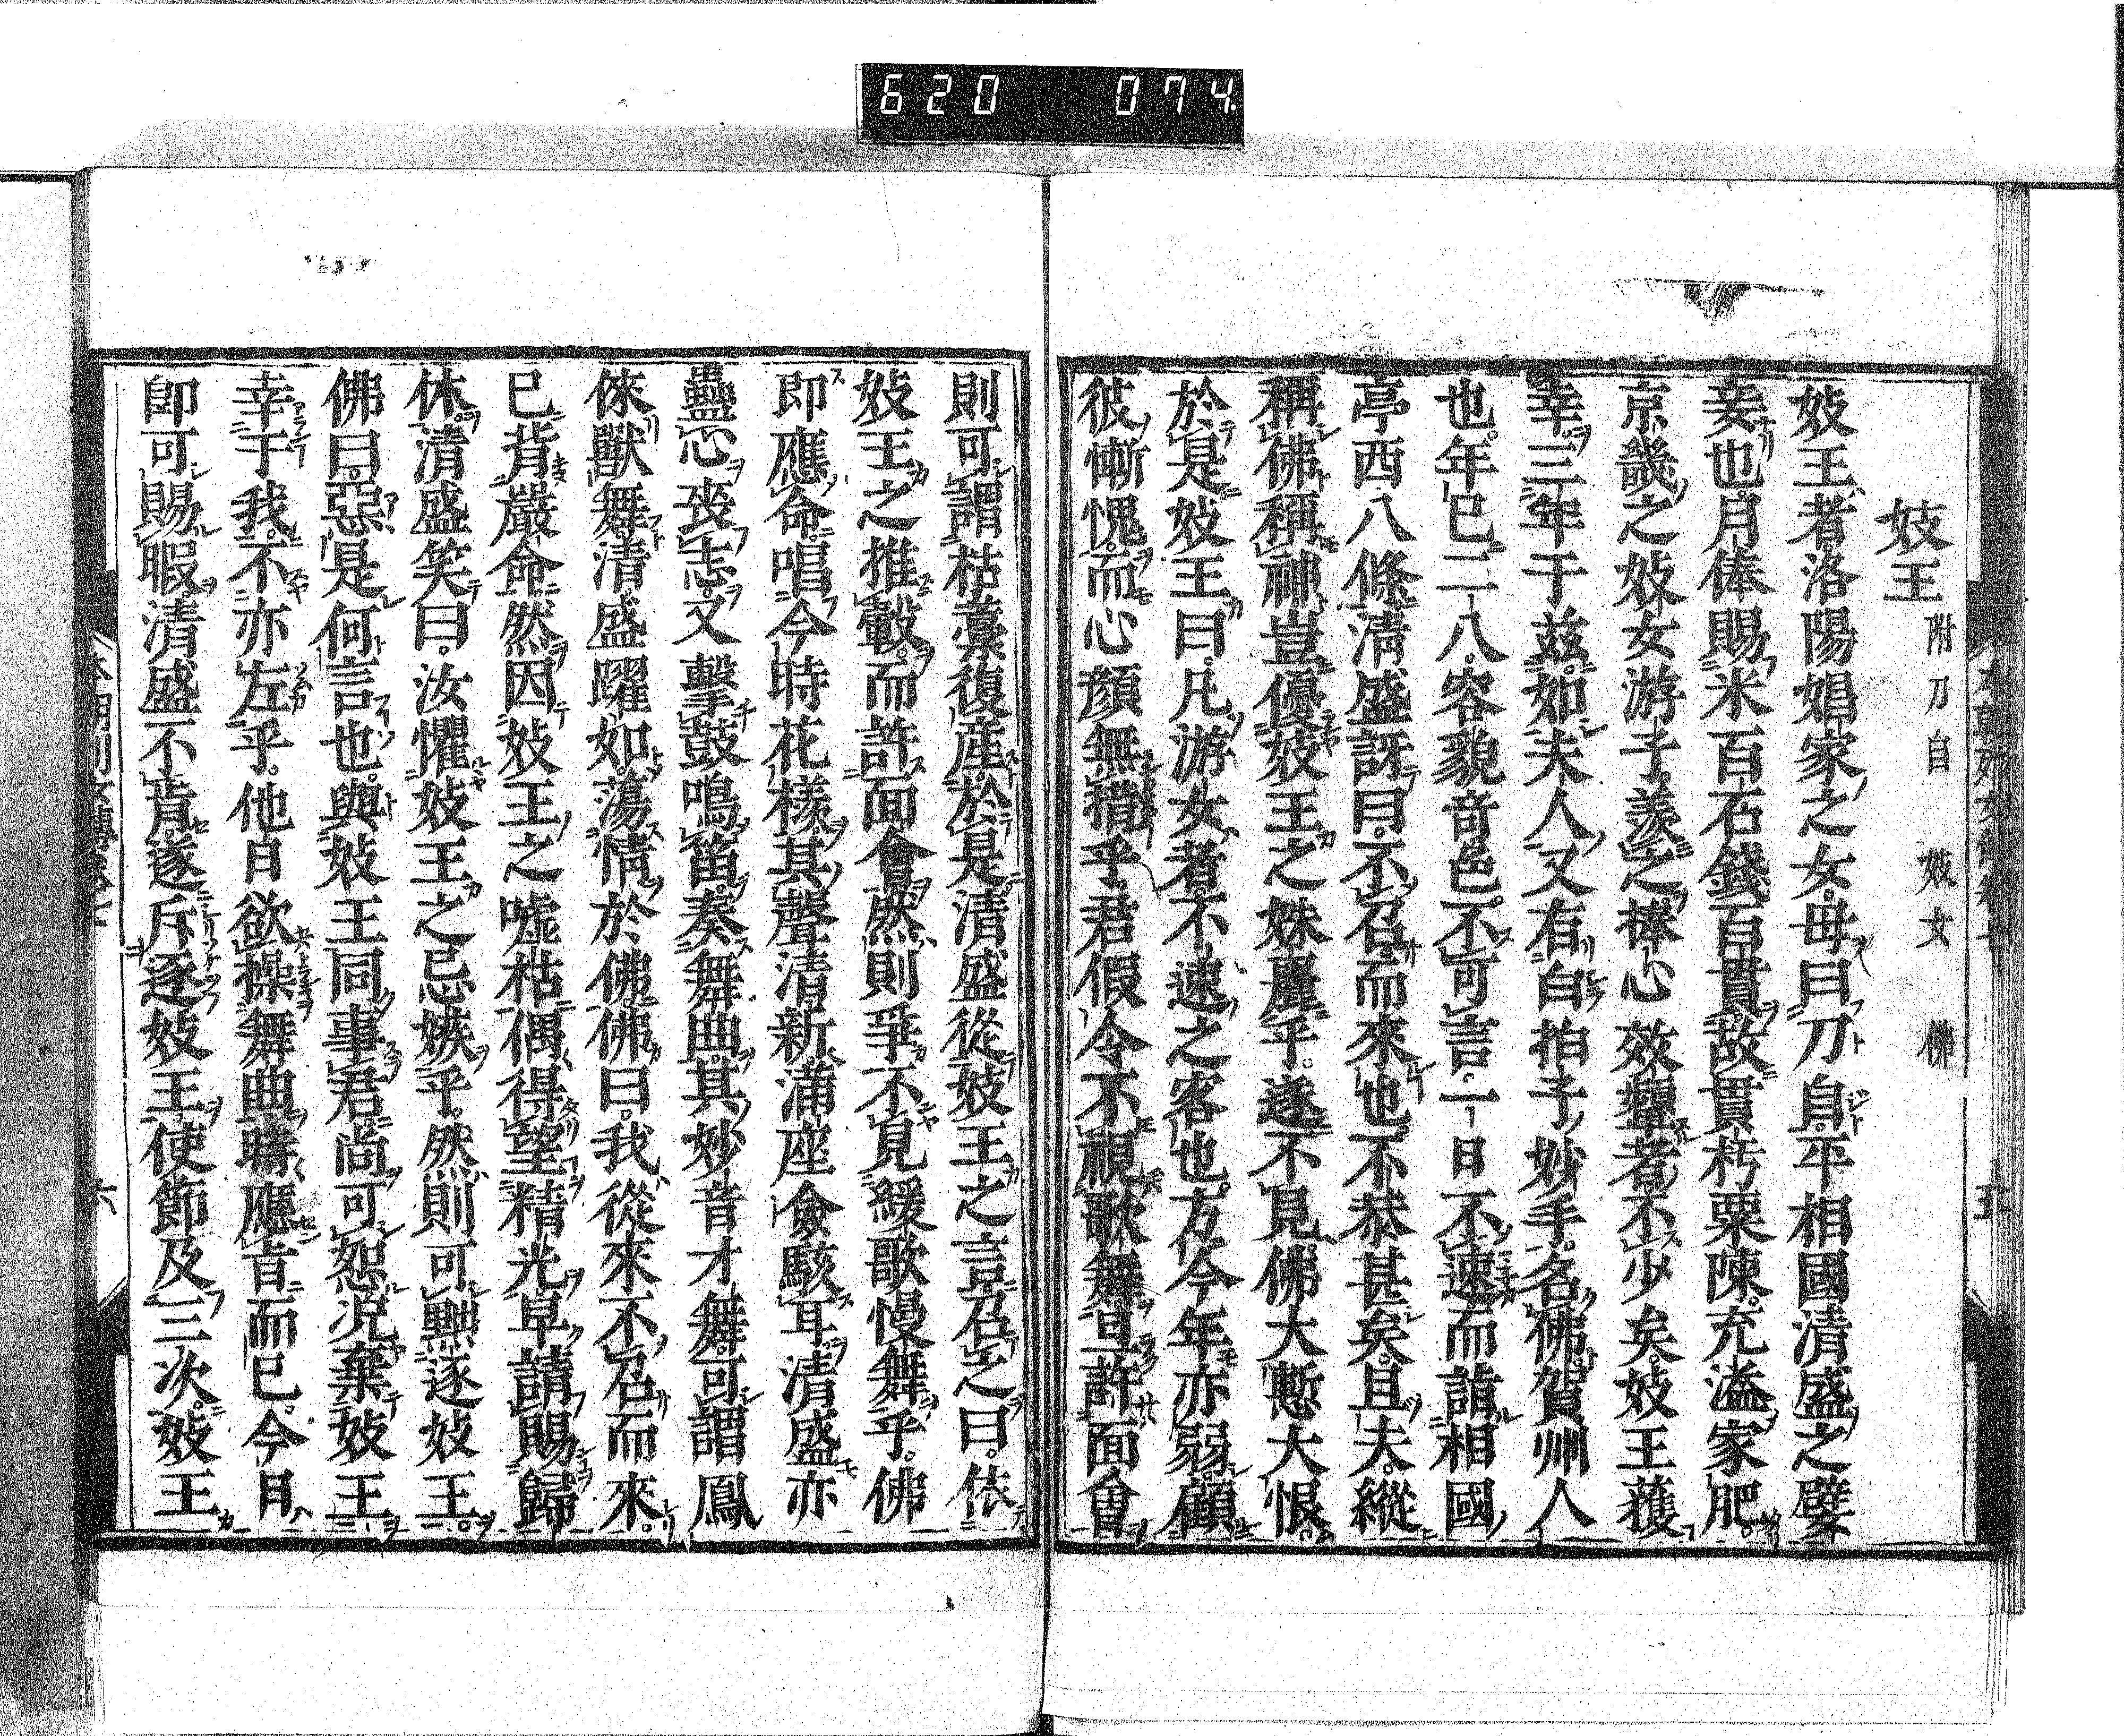 620 074.
妓王 附刀自 妓女 佛
妓王者洛陽娼家之女母曰刀自平相國清盛之嬖
妾也月俸賜米百石錢百貫故貫朽粟陳充溢家肥
京畿之妓女游子羨之捧心效顰者不少矣妓王獲
幸三年于茲如夫人又有白拍子妙手名佛賀州人
也年巳二八容貌奇色不可言一日不速而詣相國
亭西八條清盛訝曰不召而來也不恭甚矣且夫縱
稱佛稱神豈優妓王之姝麗乎遂不見佛大慙大恨
於是妓王曰凡游女者不速之客也方今年亦弱顧
彼慚愧而心顏無措乎君假令不視歌舞且許面會
則可謂枯藁復産於是清盛從妓王之言召之曰依
妓王之推轂而許面會然則爭不見緩歌慢舞乎佛
即應命唱今時花樣其聲清新滿座僉駭耳清盛亦
蠱心喪志又擊鼓鳴笛奏舞曲其妙音才舞可謂鳳
倈獸舞清盛躍如蕩情於佛佛曰我從來不召而來
已背嚴命然因妓王之嘘枯偶得望精光早請賜歸
休清盛笑曰汝懼妓王之忌嫉乎然則可黜逐妓王
佛曰惡是何言也與妓王同事君尚可怨況棄妓王
幸于我不亦左乎他日欲操舞曲時應旨而已今日
即可賜暇清盛不肯遂斥逐妓王使節及三次妓王
五
六